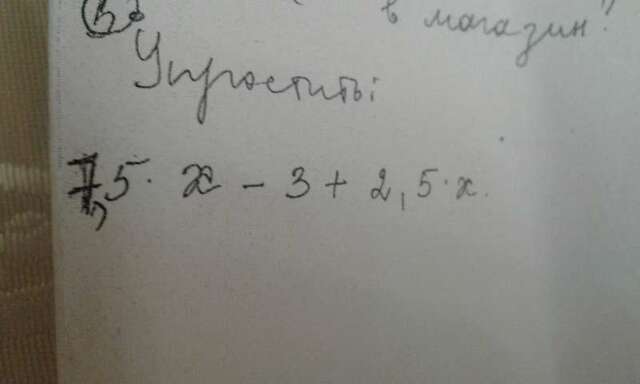 в магазин?"
Упростить:
7,5 · x - 3 + 2,5 · x.